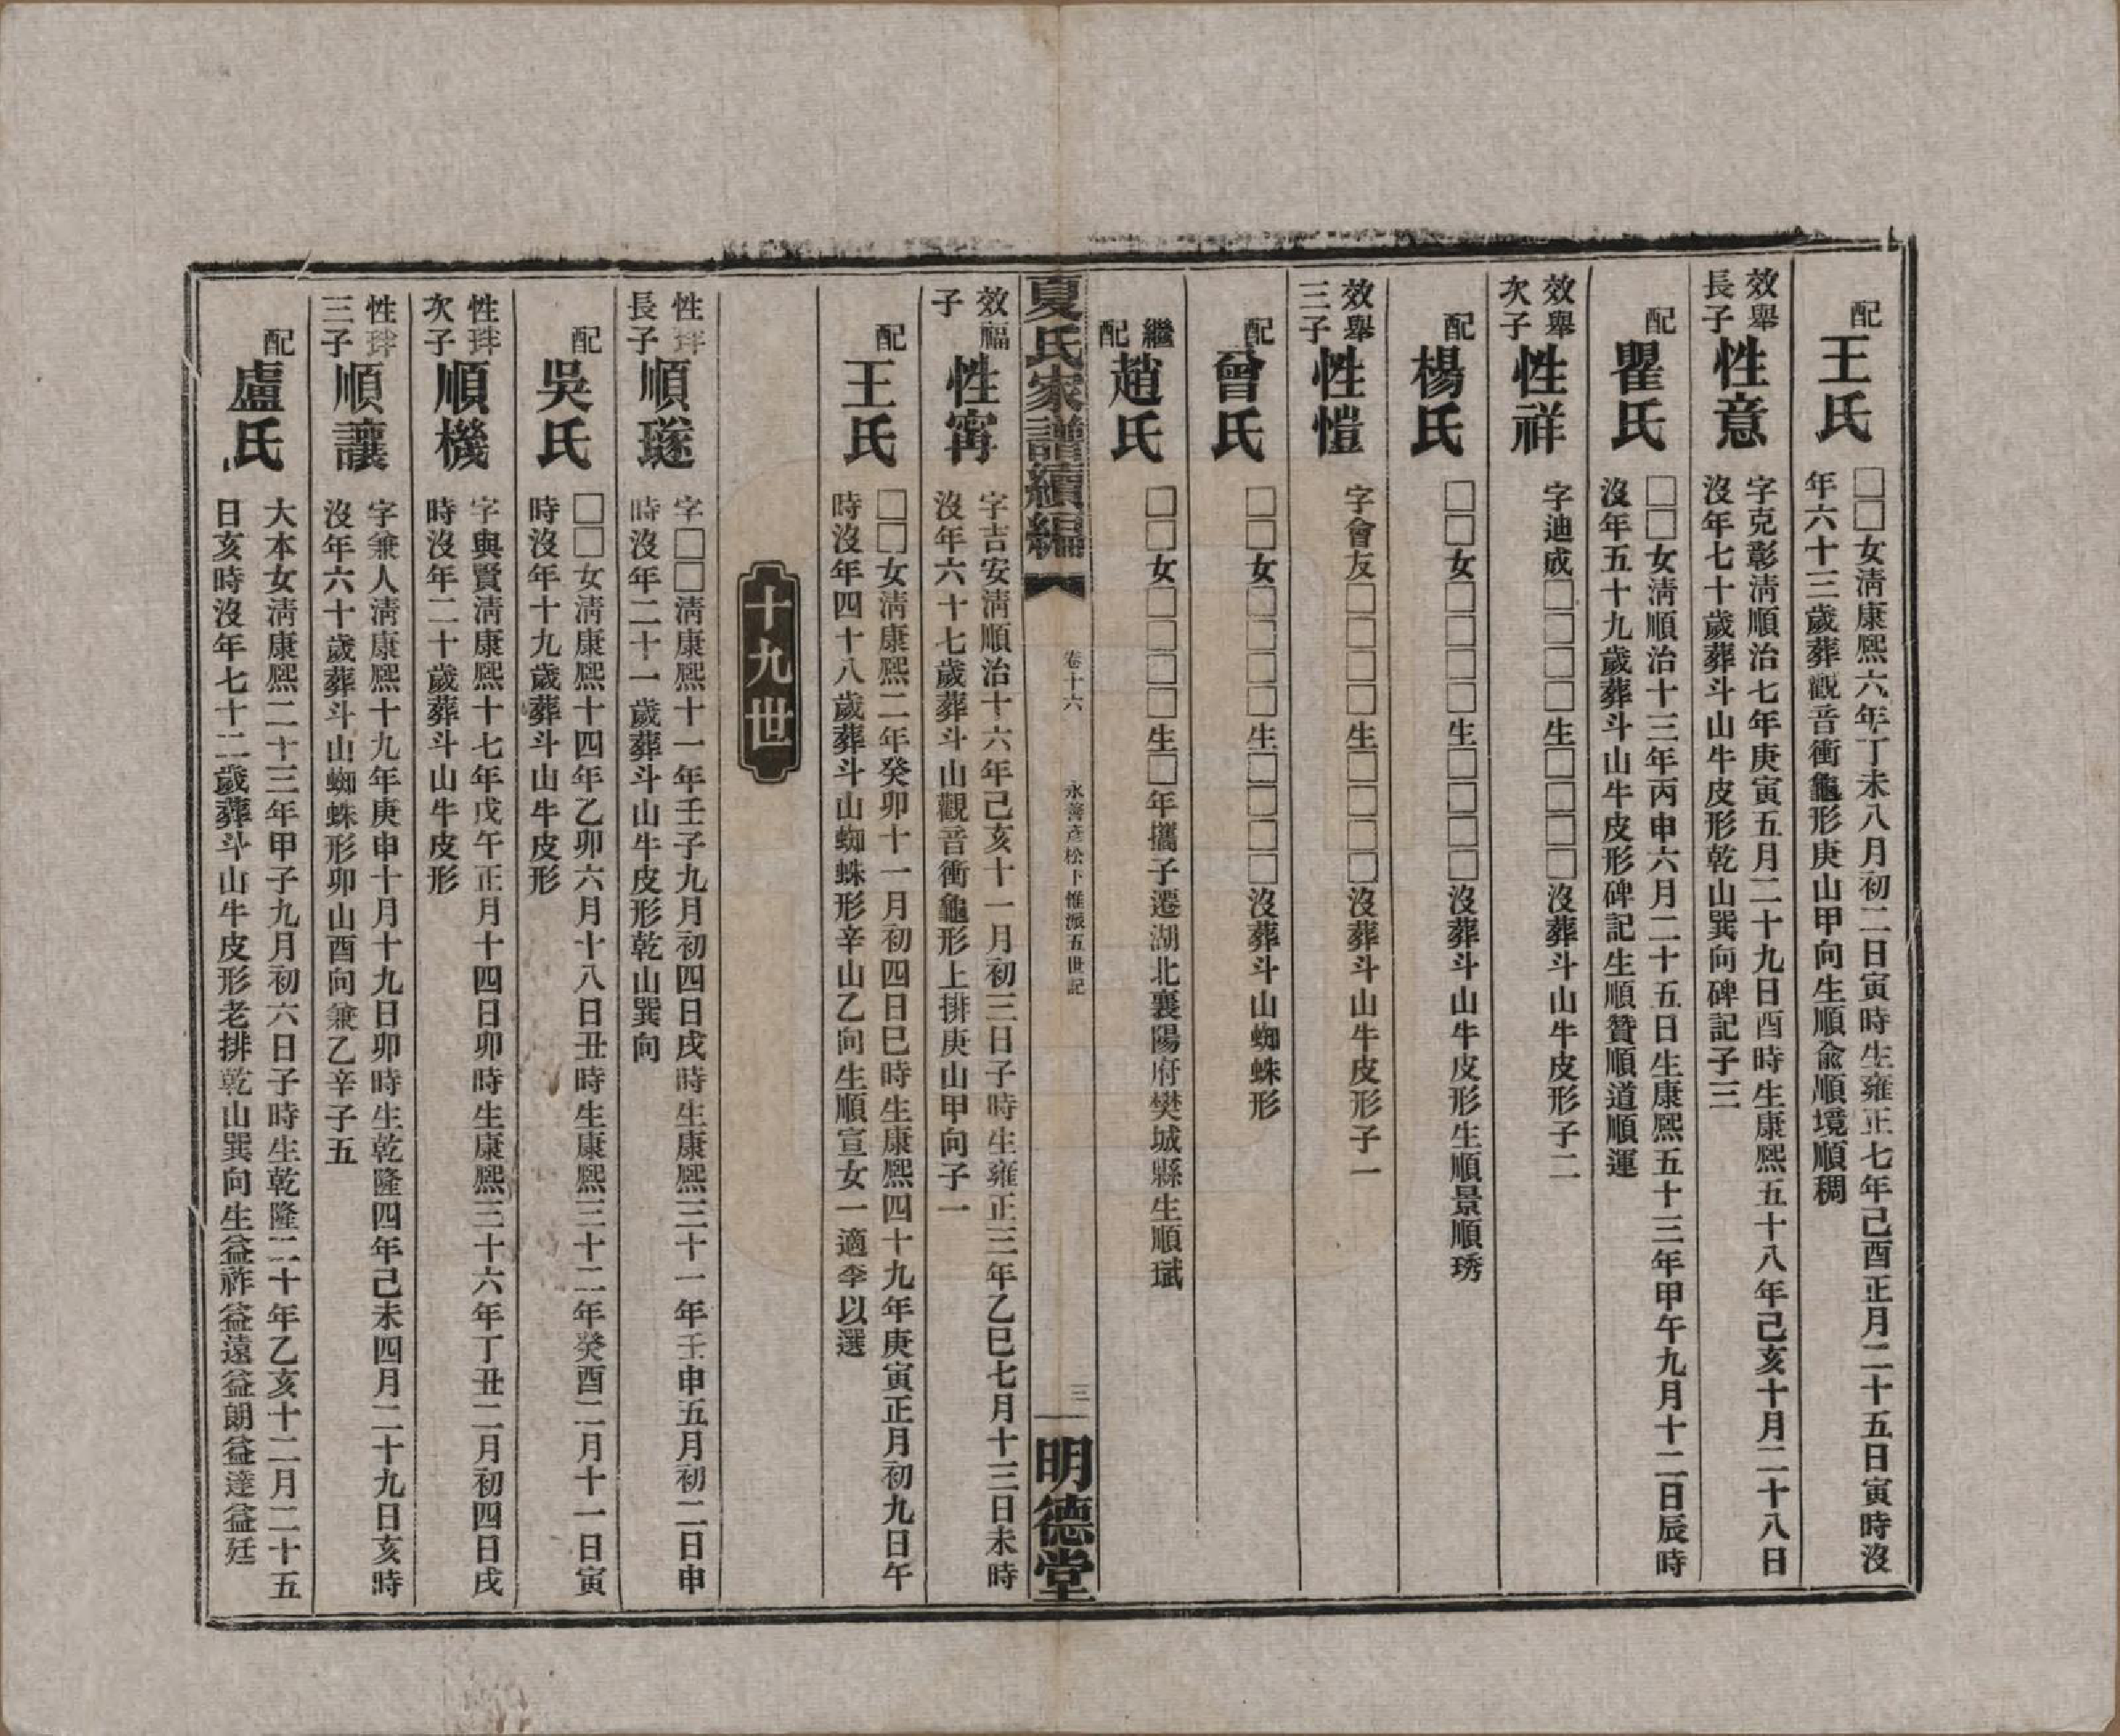 配
王氏
□□女淸康熙六年丁未八月初二日寅時生雍正七年己酉正月二十五日寅時沒
年六十三歲葬觀音衝龜形庚山甲向生順兪順境順稠
效舉
長子
性意
字克彰淸順治七年庚寅五月二十九日酉時生康熙五十八年己亥十月二十八日
沒年七十歲葬斗山牛皮形乾山巽向碑記子三
配
瞿氏
□□女淸順治十三年丙申六月二十五日生康熙五十三年甲午九月十二日辰時
沒年五十九歲葬斗山牛皮形碑記生順贊順道順運
效舉
次子
性祥
字迪成□□□□生□□□□沒葬斗山牛皮形子二
配
楊氏
□□女□□□□生□□□□沒葬斗山牛皮形生順景順琇
效舉
三子
性愷
字會友□□□□生□□□□沒葬斗山牛皮形子一
配
曾氏
□□女□□□□生□□□□沒葬斗山蜘蛛形
繼
配
趙氏
□□女□□□□生□年攜子遷湖北襄陽府樊城縣生順珷
夏氏家譜續編
卷十六
永善彦松下惟派五世記
三
明德堂
效福
子
性甯
字吉安淸順治十六年己亥十一月初三日子時生雍正三年乙巳七月十三日未時
沒年六十七歲葬斗山觀音衝龜形上排庚山甲向子一
配
王氏
□□女淸康熙二年癸卯十一月初四日巳時生康熙四十九年庚寅正月初九日午
時沒年四十八歲葬斗山蜘蛛形辛山乙向生順宣女一適李以選
十九世
性
長子
順璲
字□□淸康熙十一年壬子九月初四日戌時生康熙三十一年壬申五月初二日申
時沒年二十一歲葬斗山牛皮形乾山巽向
配
吳氏
□□女淸康熙十四年乙卯六月十八日丑時生康熙三十二年癸酉二月十一日寅
時沒年十九歲葬斗山牛皮形
性
次子
順機
字與賢淸康熙十七年戊午正月十四日卯時生康熙三十六年丁丑二月初四日戌
時沒年二十歲葬斗山牛皮形
性
三子
順讓
字兼人淸康熙十九年庚申十月十九日卯時生乾隆四年己未四月二十九日亥時
沒年六十歲葬斗山蜘蛛形卯山酉向兼乙辛子五
配
盧氏
大本女淸康熙二十三年甲子九月初六日子時生乾隆二十年乙亥十二月二十五
日亥時沒年七十二歲葬斗山牛皮形老排乾山巽向生益祚益遠益朗益達益廷